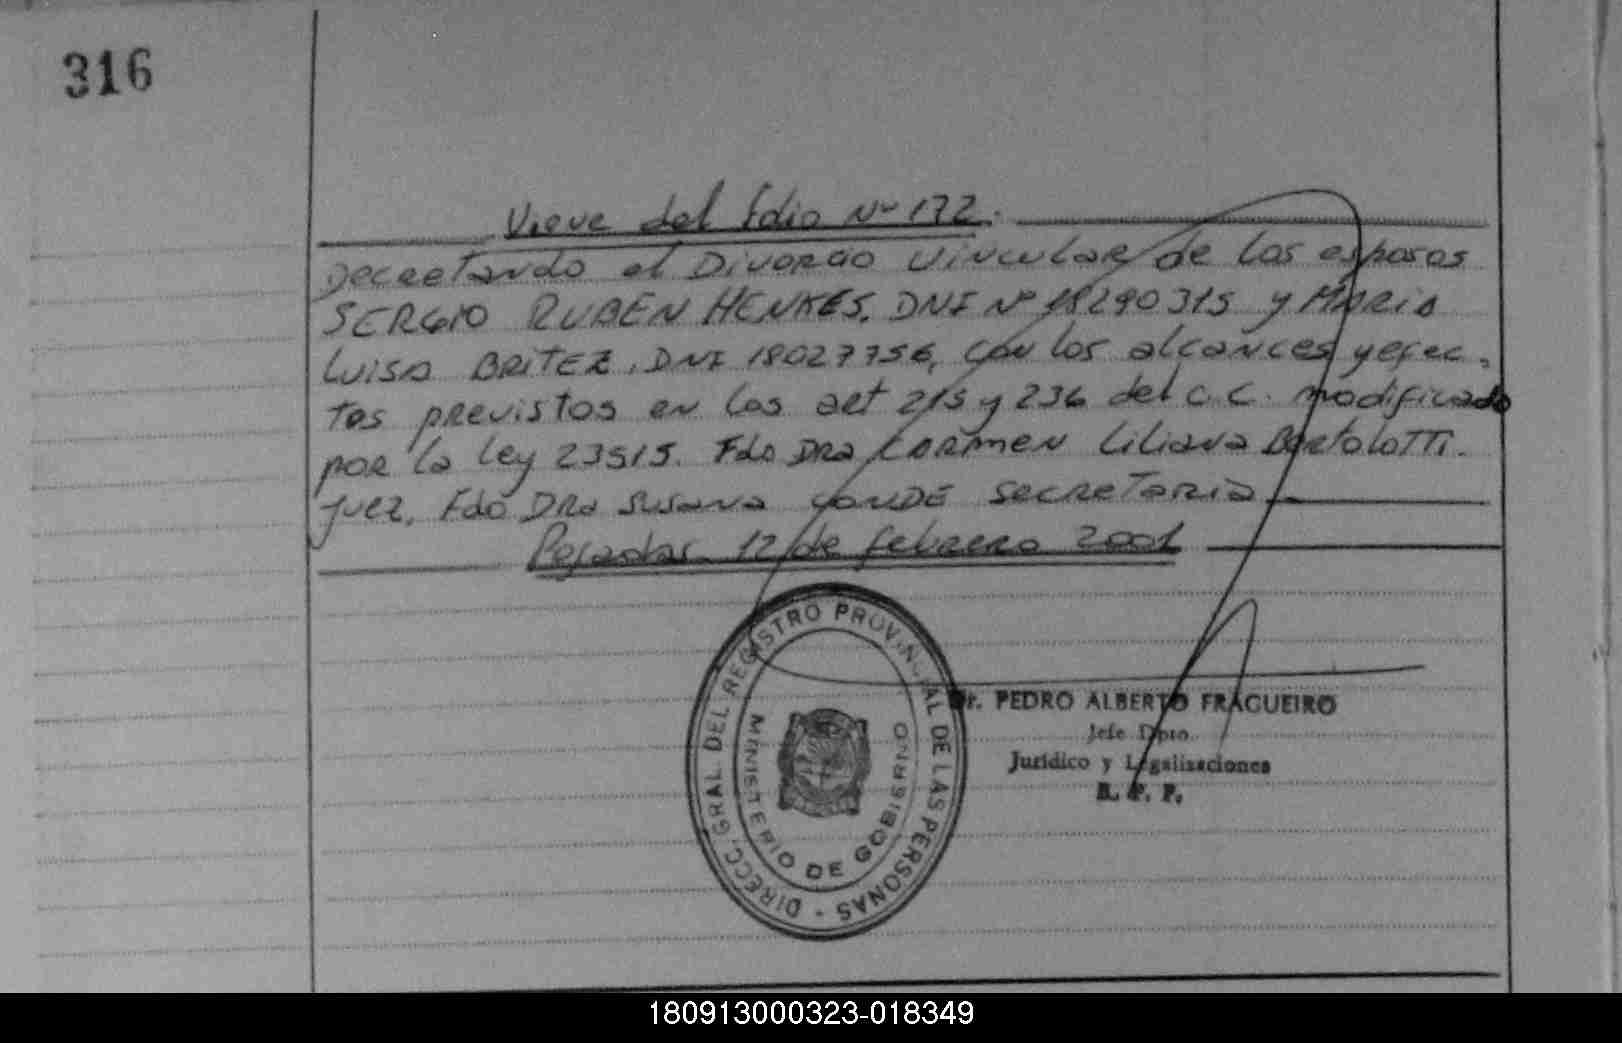 316
Viene del folio Nº 172.
Decretando el Divorcio vincular de los esposos
SERGIO RUBEN HENKES, DNI Nº 18290315 y MARIA
LUISA BRITEZ, DNI 18027756, con los alcances y efec-
tos previstos en los art 215 y 236 del C.C. modificado
por la ley 23515. Fdo DRA CARMEN Liliana Bortolotti.
Juez, Fdo DRA Susana CONDE Secretaria
Posadas 12 de febrero 2001
DIRECC. GRAL. DEL REGISTRO PROVINCIAL DE LAS PERSONAS -
MINISTERIO DE GOBIERNO
Dr. PEDRO ALBERTO FRAGUEIRO
Jefe Dpto.
Jurídico y Legalizaciones
R. P. P.
180913000323-018349